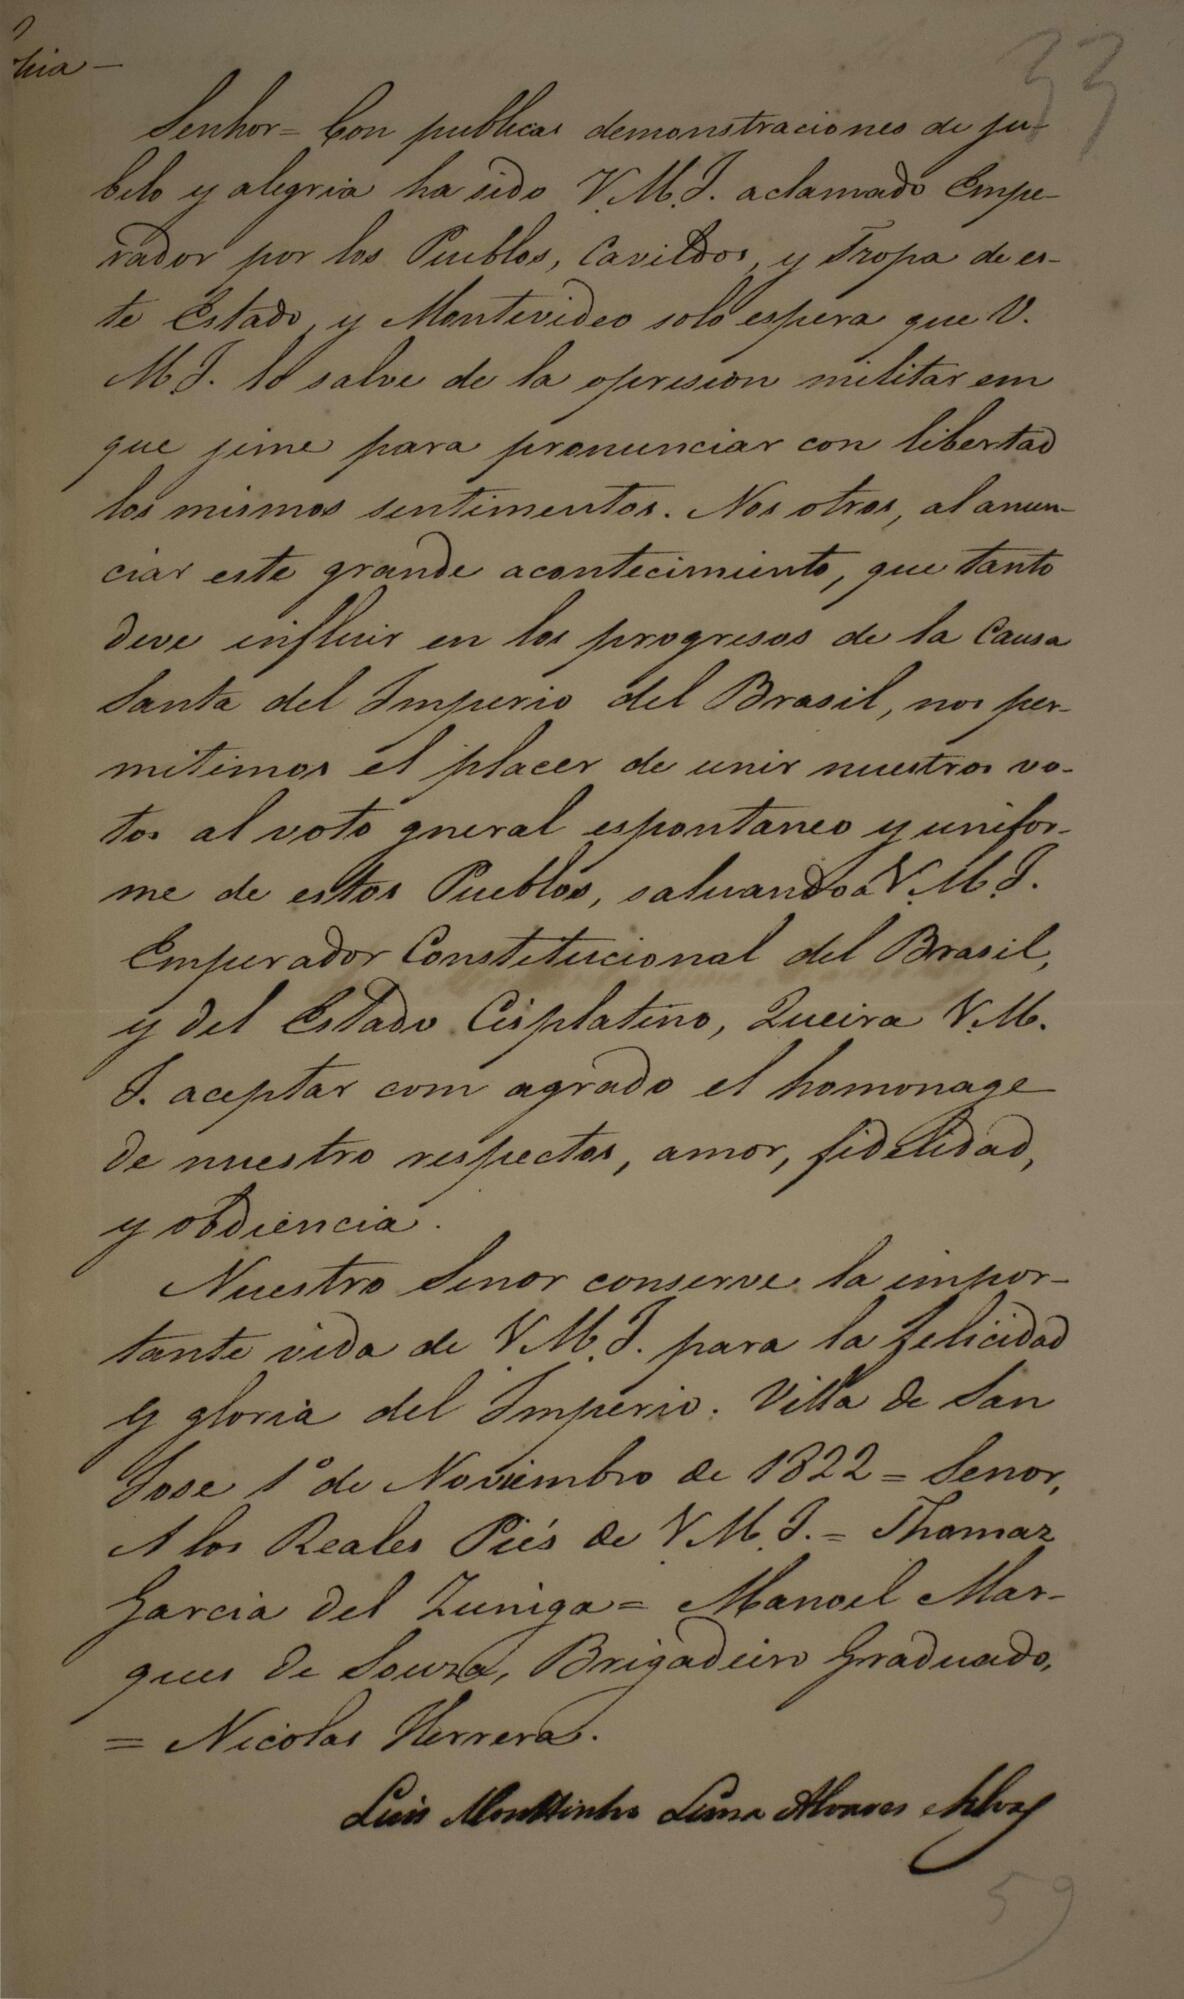 33
Senhor = Con publicas demonstraciones de ju-
belo y alegria ha sido V.M.I. aclamado Empe-
rador por los Pueblos, Cavildos, y Tropa de es-
te Estado, y Montevideo solo espera que V.
M.I. lo salve de la opresion militar em
que jime para pronunciar con libertad
los mismos sentimentos. Nos otros, al anun-
ciar este grande acontecimiento, que tanto
deve influir en los progresos de la Causa
Santa del Imperio del Brasil, nos per-
mitimos el placer de unir nuestros vo-
tos al voto gneral espontaneo y unifor-
me de estos Pueblos, saluando a V.M.I.
Emperador Constitucional del Brasil,
y del Estado Cisplatino, Queira V.M.
I. aceptar com agrado el homonage
de nuestro respectos, amor, fidelidad,
y obdiencia.
Nuestro Senor conserve la impor-
tante vida de V.M.I. para la felicidad
y gloria del Imperio. Villa de San
Jose 1º de Noviembro de 1822 = Senor,
A los Reales Piés de V.M.I. = Thomaz
Garcia del Zuniga = Manoel Mar-
ques de Souza, Brigadeiro Graduado,
= Nicolas Herrera.
Luis Lima Alvares
59